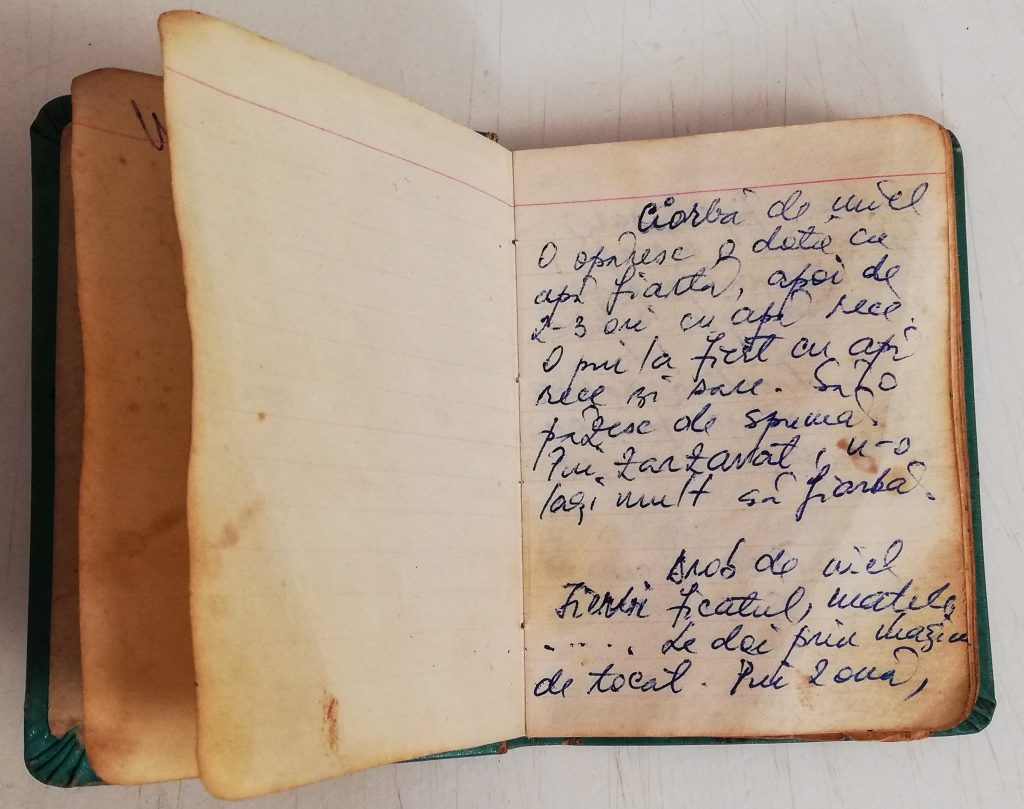 Ciorbă de miel
O opăresc o dată cu
apă fiartă, apoi de
2-3 ori cu apă rece.
O pui la fiert cu apă
rece și sare. Să o
păzesc de spumă.
Pui zarzavat, n-o
lași mult să fiarbă.
Drob de miel
Fierbi ficatul, matele
..... Le dai prin mașina
de tocat. Pui 2 ouă,